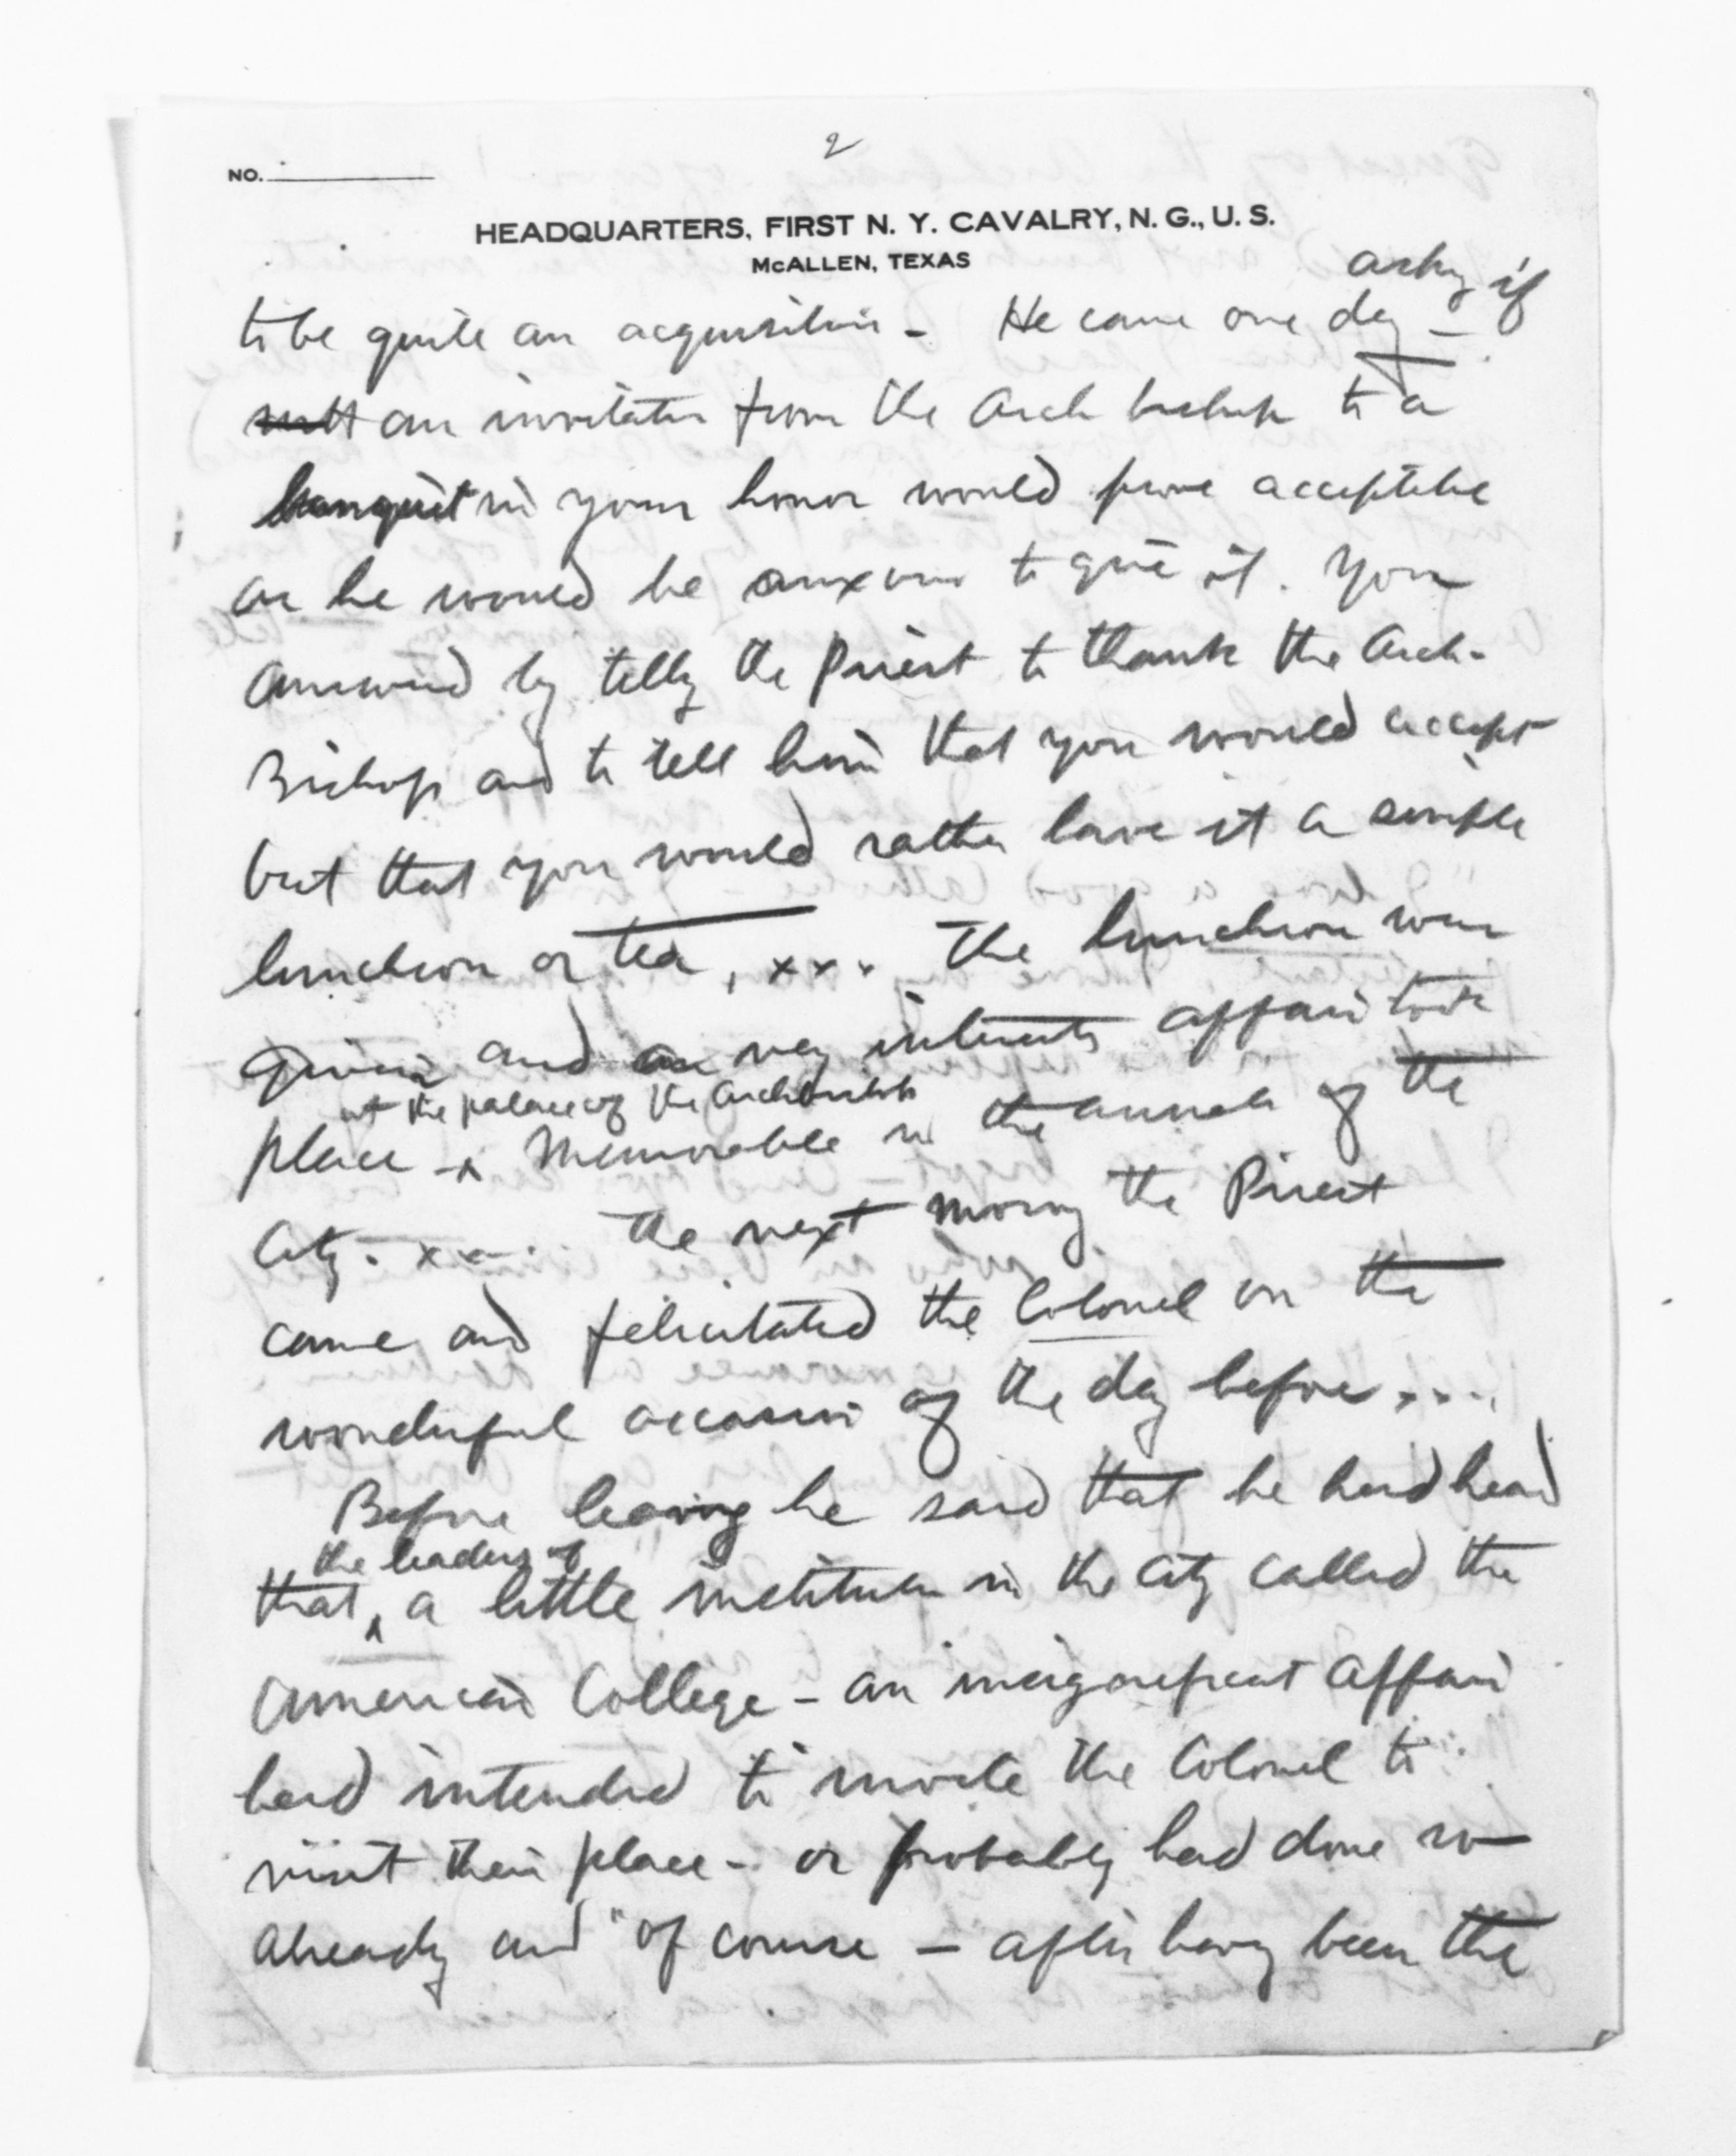 2
NO.
HEADQUARTERS, FIRST N. Y. CAVALRY, N. G., U. S.
McALLEN, TEXAS
asking if
to be quite an acquisition - He came one day -
an invitation from the Arch bishop to a
banquet in your honor would prove acceptable
as he would be anxious to give it. You
answered by telling the Priest to thank the Arch-
Bishop and to tell him that you would accept
but that you would rather have it a simple
luncheon or tea, xxx. The luncheon was
given and a very interesting affair took
at the palace of the Archbishop
place - memorable in the annals of the
City. xxx. The next morning the Priest
came and felicitated the Colonel on the
wonderful occasion of the day before....
Before leaving he said that he had heard
the leaders of
that a little institution in the City called the
American College - an insignificant affair
had intended to invite the Colonel to
visit their place - or probably had done so
already and "of course - after having been the